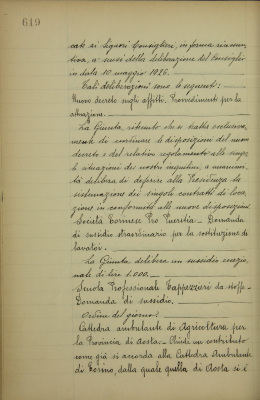 619
cate ai Signori Consiglieri, in forma riassun-
tiva, a sensi della deliberazione del Consiglio
in data 10 maggio 1926.
Tali deliberazioni sono le seguenti:
Nuovo decreto sugli affitti. Provvedimenti per la
situazione.
La Giunta, ritenuto che si tratta esclusiva-
mente di coordinare le disposizioni del nuovo
decreto e del relativo regolamento alle singo-
le situazioni dei nostri inquilini, a unanimi-
tà delibera di deferire alla Presidenza la
sistemazione dei singoli contratti di loca-
zione in conformità alle nuove disposizioni
Società Torinese Pro Pueritia - Domanda
di sussidio straordinario per la sostituzione di
lavatoi.
La Giunta delibera un sussidio eccezio-
nale di lire 1.000.
Scuola Professionale Tappezzieri da stoffa -
Domanda di sussidio.
Ordine del giorno:
Cattedra ambulante di Agricoltura per
la Provincia di Aosta. - Chiede un contributo
come già si accorda alla Cattedra Ambulante
di Torino, dalla quale quella di Aosta si è